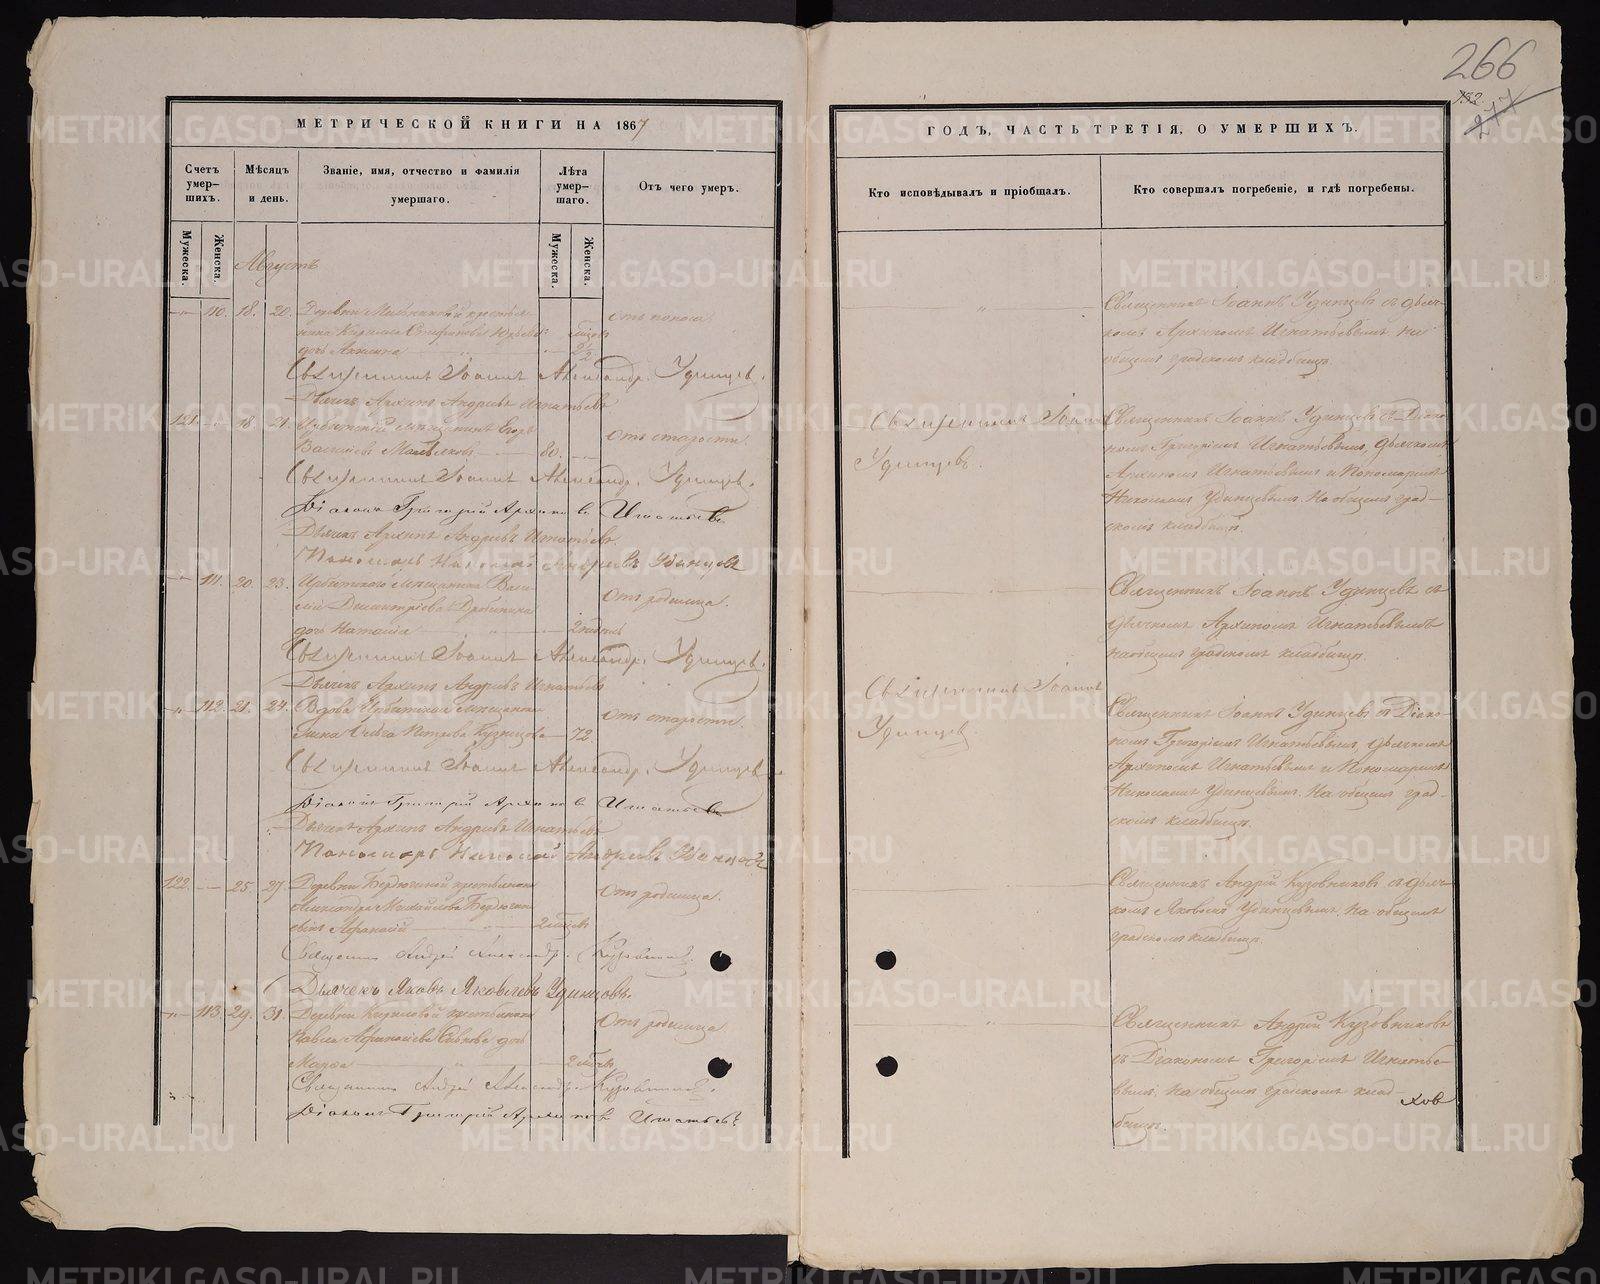 266
132.
277
МЕТРИЧЕСКОЙ КНИГИ НА 1867
ГОДЪ, ЧАСТЬ ТРЕТІЯ, О УМЕРШИХЪ.
Счетъ умер–шихъ.
Мѣсяцъ и день.
Званіе, имя, отчество и фамилія умершаго.
Лѣта умер–шаго.
Отъ чего умеръ.
Кто исповѣдывалъ и пріобщалъ.
Кто совершалъ погребеніе, и гдѣ погребены.
Мужеска.
Женска.
Мужеска.
Женска.
Августъ
110. 18. 20. Деревни крестья–
отъ поноса
дочь
Священникъ Іоаннъ Удинцевъ съ дьяч–
комъ Архипомъ Игнатьевымъ на
общемъ градскомъ кладбищѣ.
Священникъ Іоаннъ Александр. Удинцевъ.
Дьячекъ Архипъ Андреевъ Игнатьевъ
121. 18. 21. Ирбитскій мѣщанинъ Егоръ
Васильевъ 80.
отъ старости
Священникъ Іоаннъ
Удинцевъ.
Священникъ Іоаннъ Удинцевъ съ Діако–
номъ Григоріемъ Игнатьевымъ, дьячкомъ
Архипомъ Игнатьевымъ и Пономаремъ
Николаемъ Удинцевымъ. На общемъ град–
скомъ кладбищѣ.
Священникъ Іоаннъ Александр. Удинцевъ.
Діаконъ Григорій Архиповъ Игнатьевъ
Дьячекъ Архипъ Андреевъ Игнатьевъ
Пономарь Николай Андреевъ Удинцевъ
111. 20. 23. Ирбитскаго мѣщанина Васи–
лія Димитріева
дочь Наталія 2 недѣль
отъ родимца.
Священникъ Іоаннъ Удинцевъ съ
дьячкомъ Архипомъ Игнатьевымъ
на общемъ градскомъ кладбищѣ.
Священникъ Іоаннъ Александр. Удинцевъ.
Дьячекъ Архипъ Андреевъ Игнатьевъ
112. 21. 24. Вдова Ирбитская мѣщанка
Ольга Петрова Кузнецова 72.
отъ старости
Священникъ Іоаннъ
Удинцевъ
Священникъ Іоаннъ Удинцевъ съ Діако–
номъ Григоріемъ Игнатьевымъ, дьячкомъ
Архипомъ Игнатьевымъ и Пономаремъ
Николаемъ Удинцевымъ. На общемъ град–
скомъ кладбищѣ.
Священникъ Іоаннъ Александр. Удинцевъ
Діаконъ Григорій Архиповъ Игнатьевъ
Дьячекъ Архипъ Андреевъ Игнатьевъ
Пономарь Николай Андреевъ Удинцевъ
122. 25. 27. Деревни Бердюгиной крестьянина
Александра Михайлова Бердюгина
сынъ Афанасій 2 мѣсяц.
отъ родимца.
Священникъ Андрей Кузовниковъ съ дьяч–
комъ Яковомъ Удинцевымъ. На общемъ
градскомъ кладбищѣ.
Священникъ Андрей Александр. Кузовниковъ.
Дьячекъ Яковъ Яковлевъ Удинцовъ.
113. 29. 31. Деревни Кириловой крестьянина
Павла Афанасьева дочь
отъ родимца
Священникъ Андрей Кузовниковъ
съ Діакономъ Григоріемъ Игнатье–
вымъ. На общемъ градскомъ клад–
бищѣ.
Священникъ Андрей Александр. Кузовниковъ.
Діаконъ Григорій Архиповъ Игнатьевъ
ховъ
METRIKI.GASO-URAL.RU